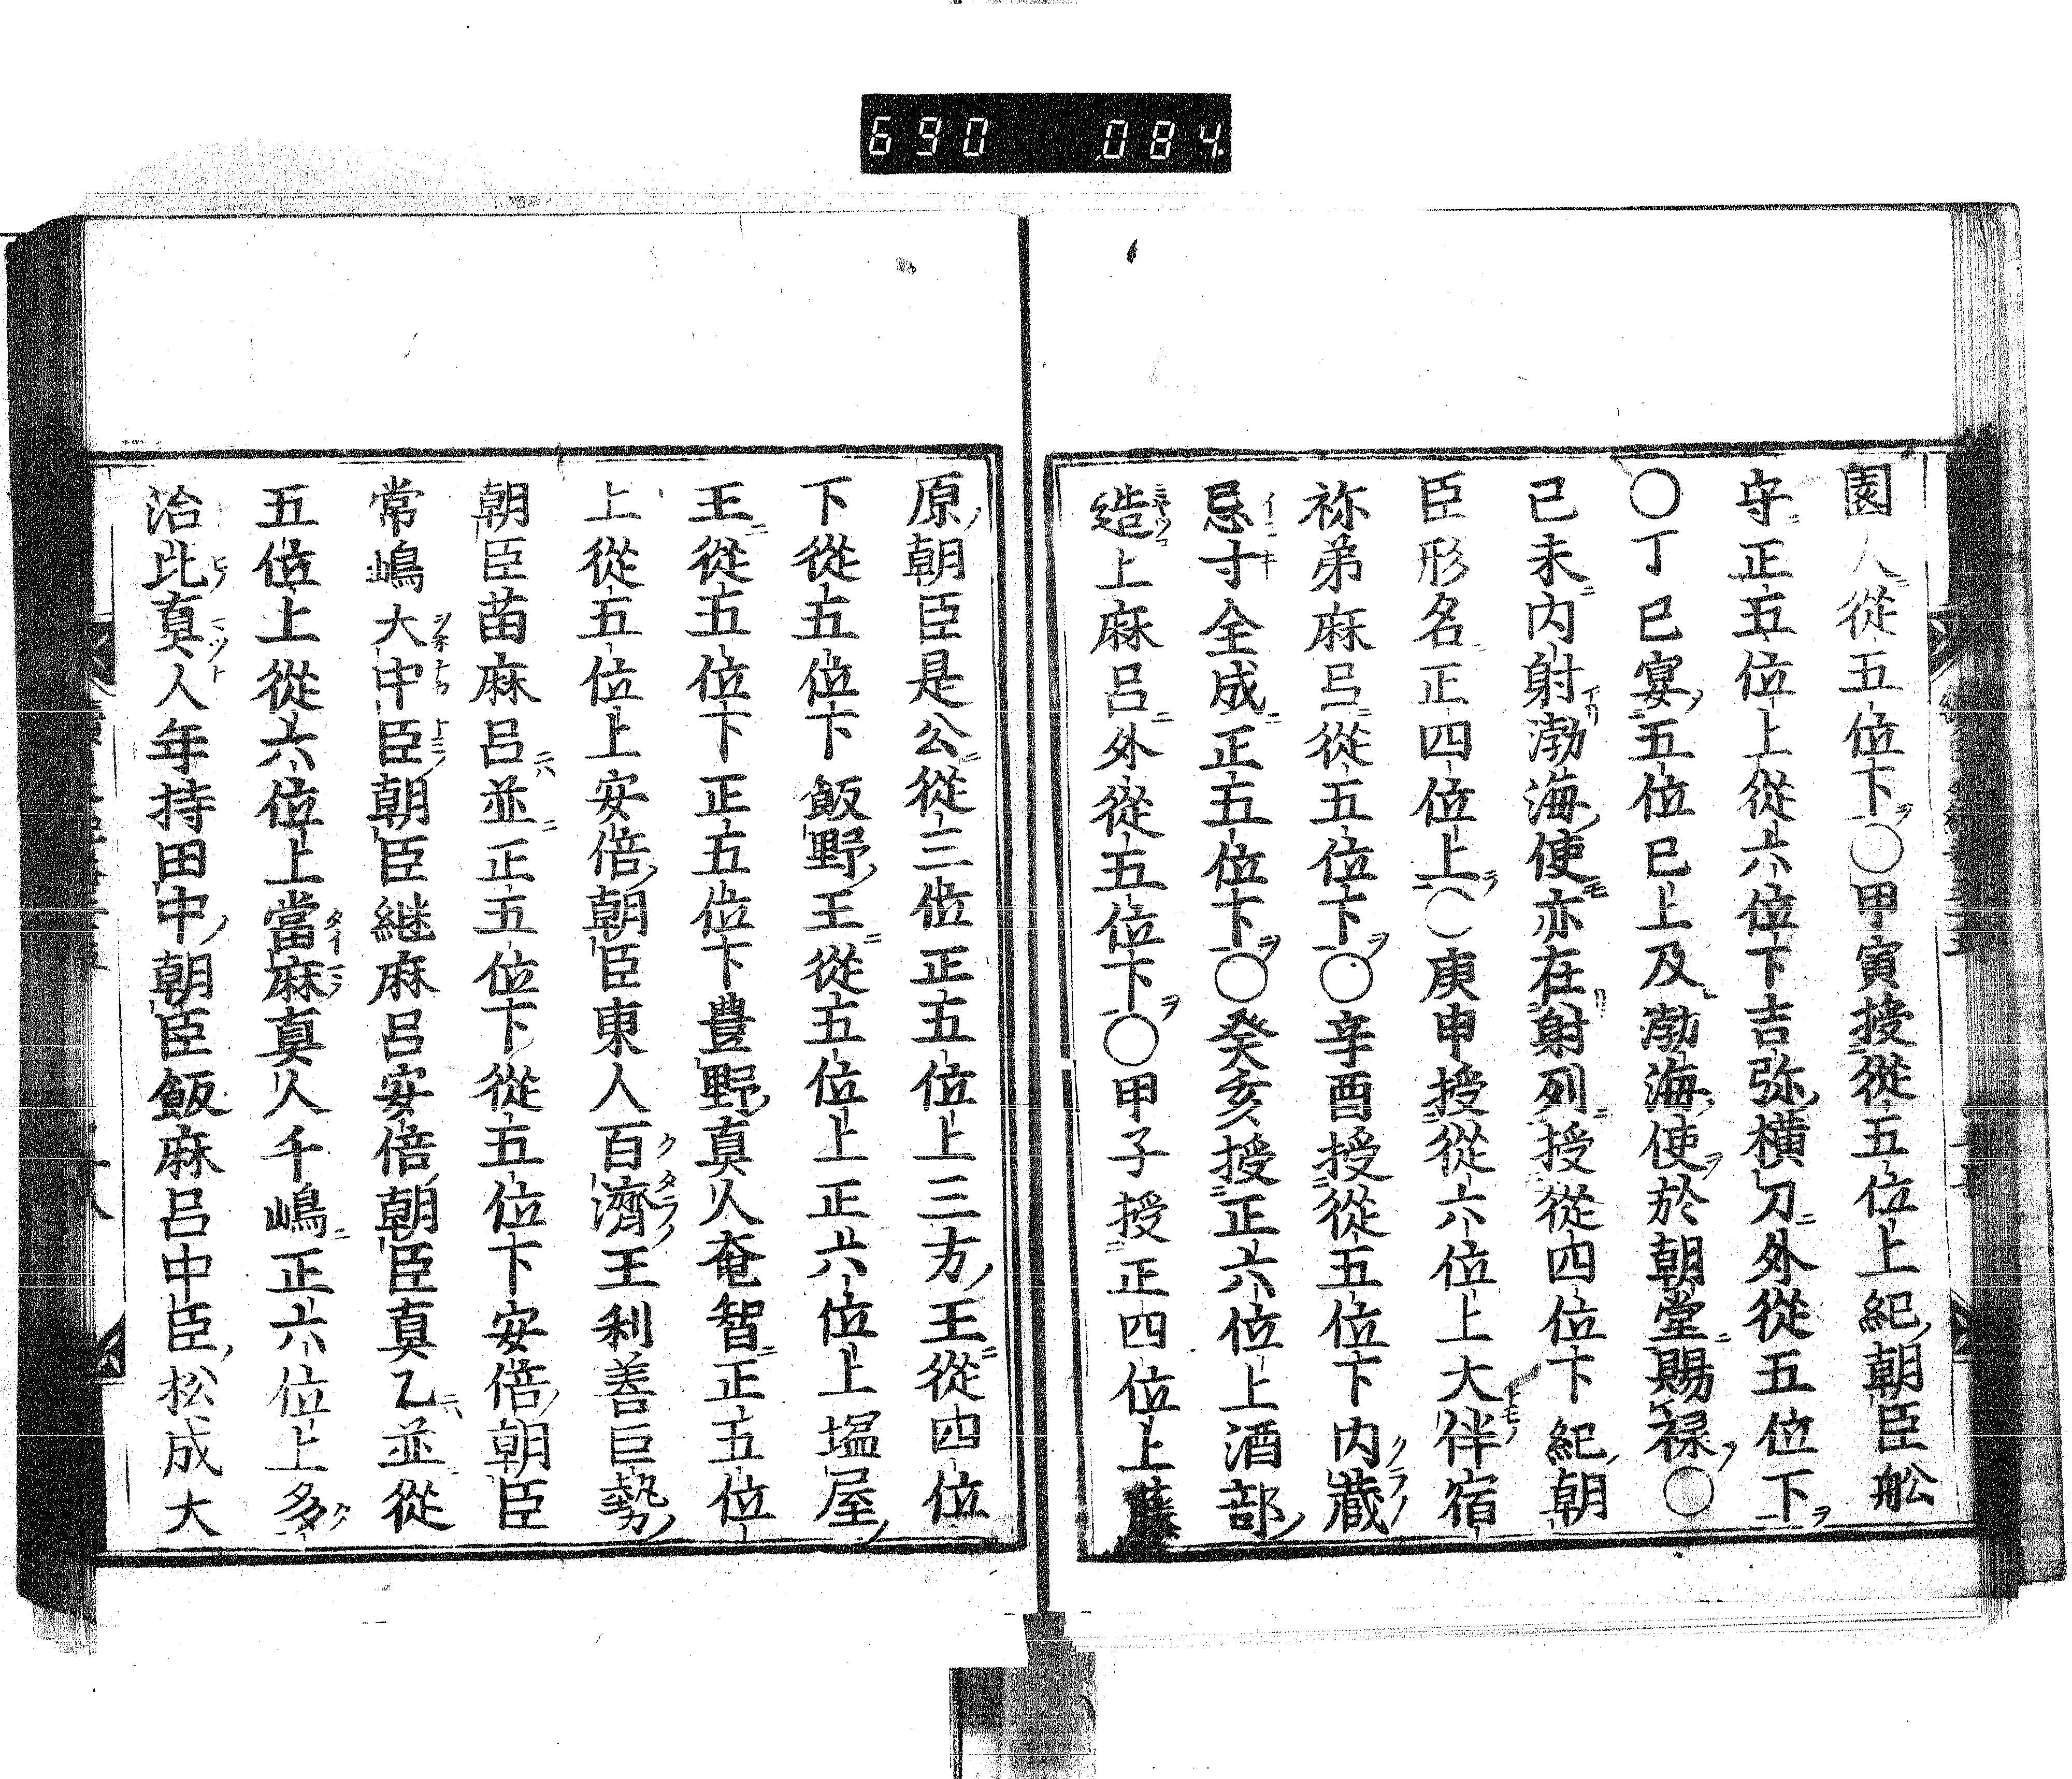 690 084
園人從五位下○甲寅授從五位上紀朝臣舩
守正五位上從六位下吉弥橫刀外從五位下
○丁巳宴五位已上及渤海使於朝堂賜禄○
己未内射渤海使亦在射列授從四位下紀朝
臣形名正四位上○庚申授從六位上大伴宿
祢弟麻呂從五位下○辛酉授從五位下内蔵
忌寸全成正五位下○癸亥授正六位上酒部
造上麻呂外從五位下○甲子授正四位上藤
原朝臣是公從三位正五位上三方王從四位
下從五位下飯野王從五位上正六位上塩屋
王從五位下正五位下豊野真人奄智正五位
上從五位上安倍朝臣東人百濟王利善巨勢
朝臣苗麻呂並正五位下從五位下安倍朝臣
常嶋大中臣朝臣継麻呂安倍朝臣真乙並從
五位上從六位上當麻真人千嶋正六位上多
治比真人年持田中朝臣飯麻呂中臣松成大